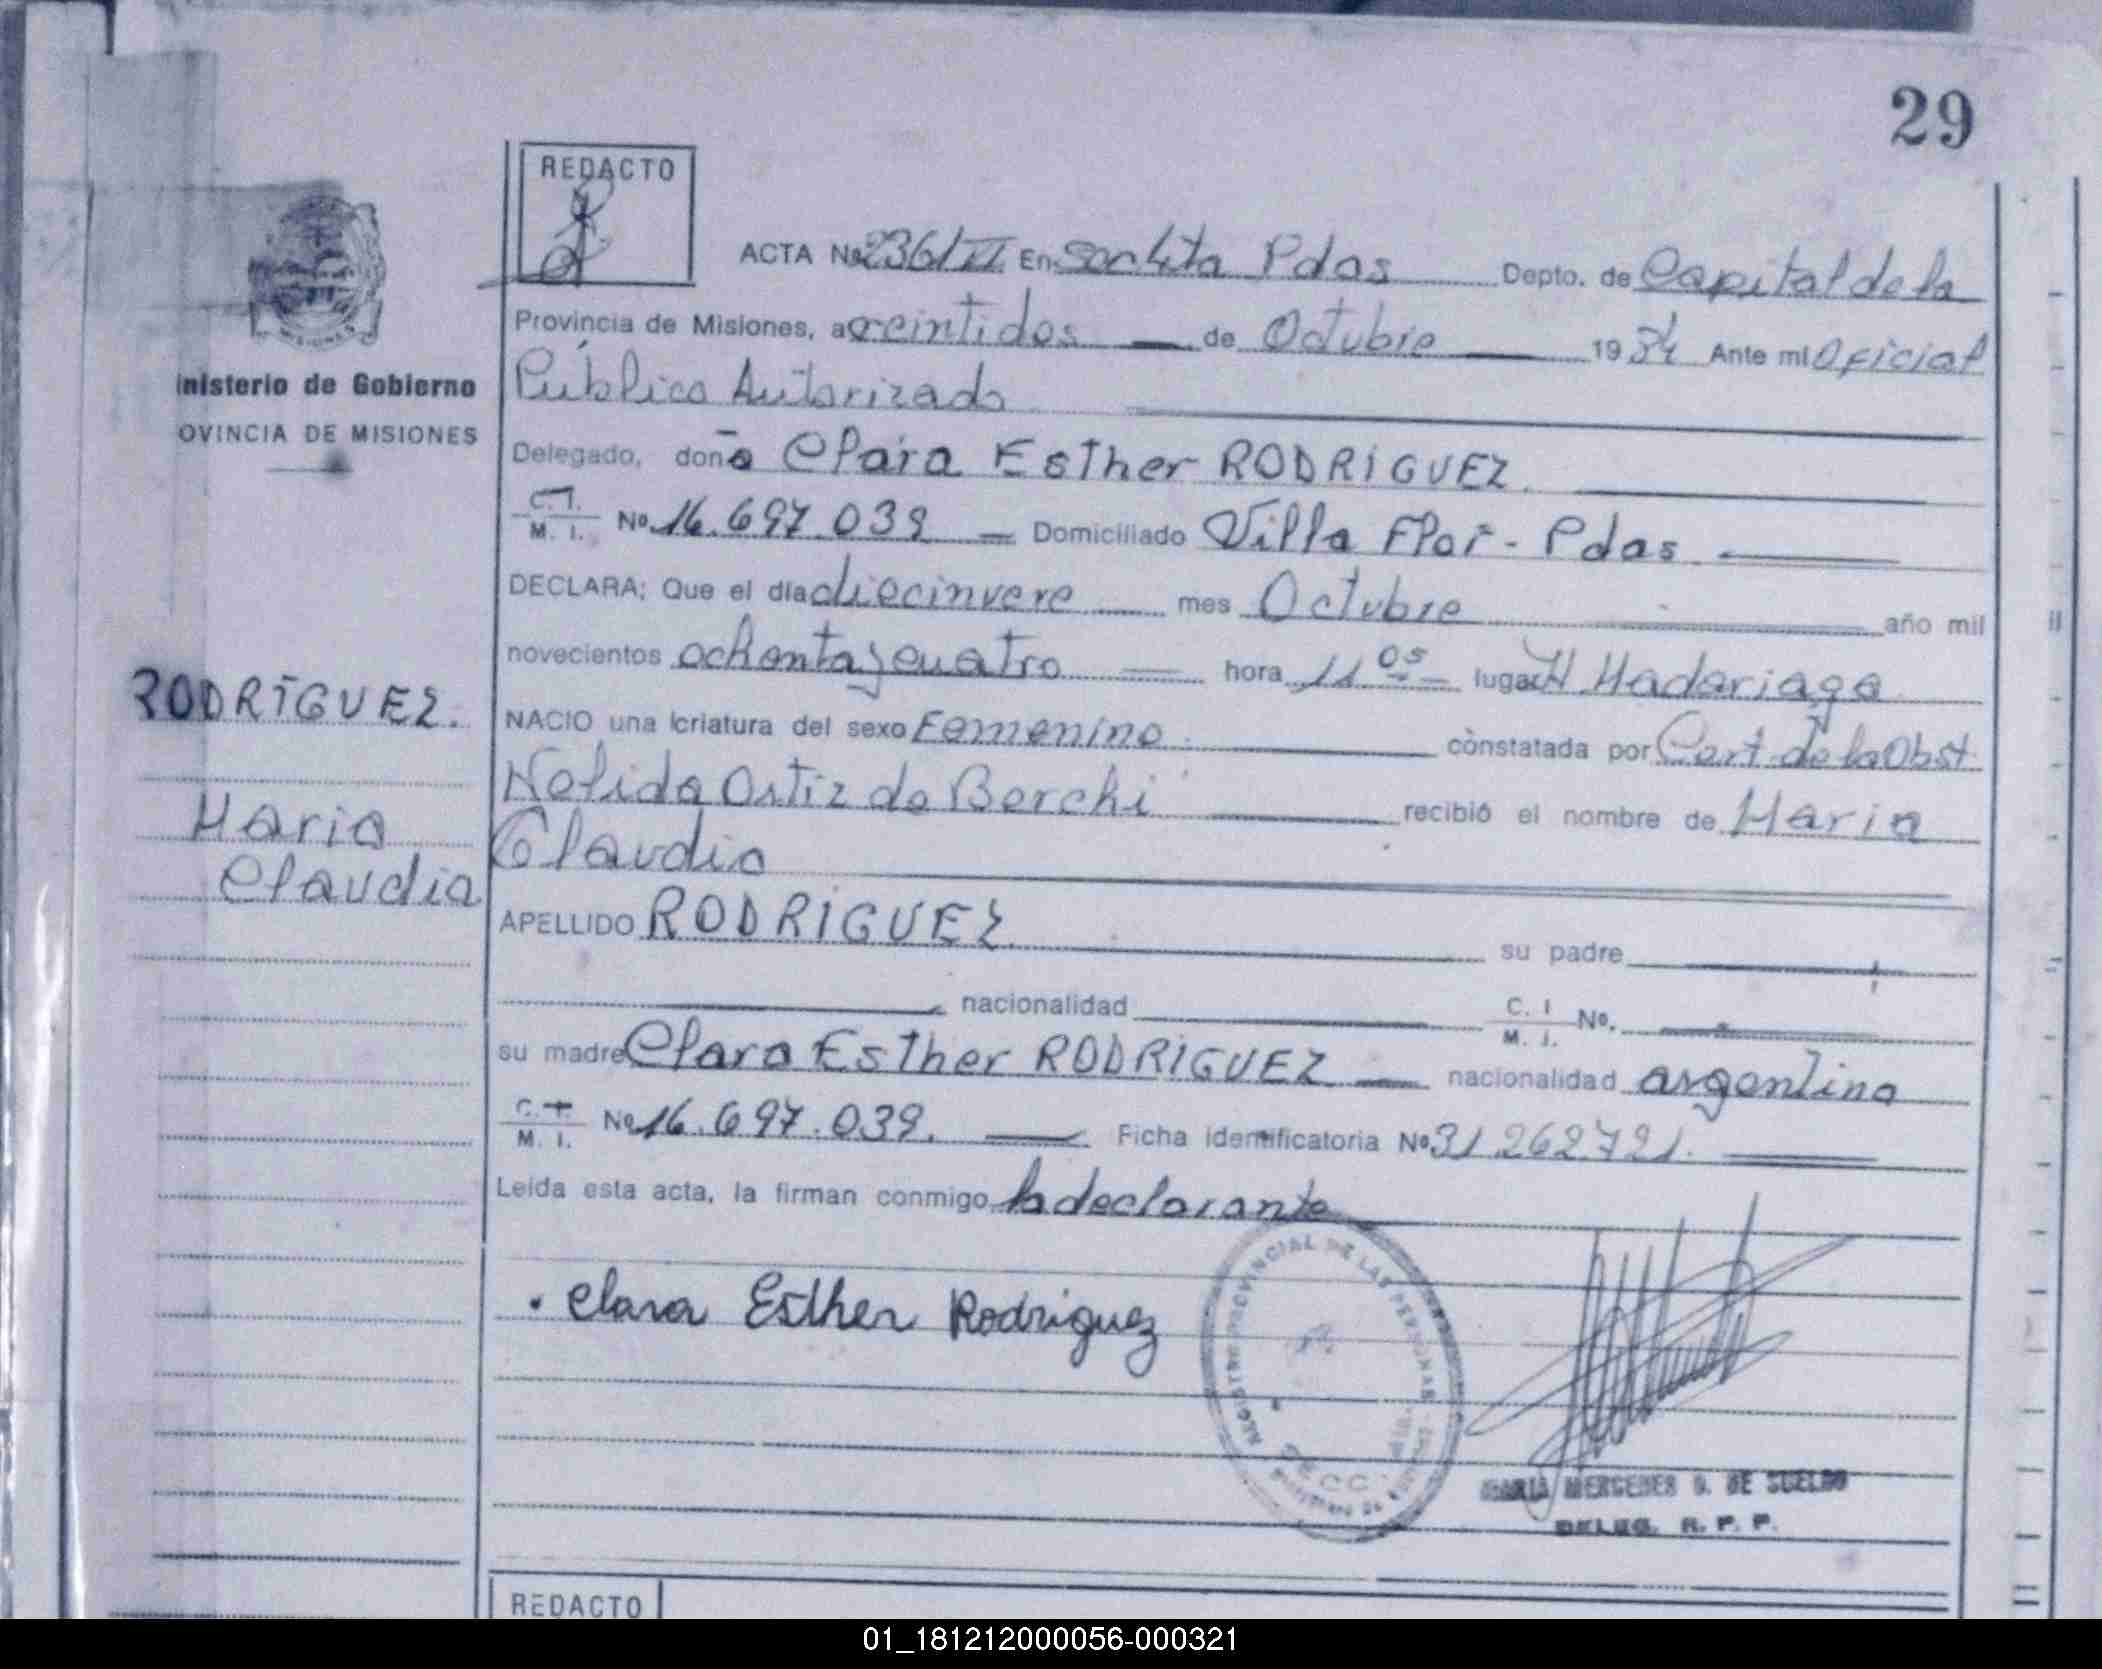 29
REDACTO
ACTA Nº 236/VI En San Lita Pdas Depto. de Capital de la
Provincia de Misiones, a veintidos de Octubre 1984 Ante mi Oficial
Público Autorizado
inisterio de Gobierno
OVINCIA DE MISIONES
Delegado, doña Clara Esther RODRIGUEZ
C.I. M. I. No. 16.697.039 Domiciliado Villa Flor - Pdas
DECLARA: Que el día diecinueve mes Octubre año mil
novecientos ochenta y cuatro hora 11 05 lugar H Madariaga
RODRIGUEZ.
Maria
Claudia
NACIO una criatura del sexo Femenino constatada por Cert de la Obst
Nelida Ortiz de Borchi recibió el nombre de Maria
Claudia
APELLIDO RODRIGUEZ su padre
nacionalidad C. I M. I. No.
su madre Clara Esther RODRIGUEZ nacionalidad argentina
C. I. M. I. No 16.697.039. Ficha identificatoria Nº 31.262.721.
Leída esta acta, la firman conmigo, la declarante
Clara Esther Rodriguez
REGISTRO PROVINCIAL DE LAS PERSONAS
MARIA MERCEDES G. DE SUELDO
DELEG. R. P. P.
REDACTO
01_181212000056-000321